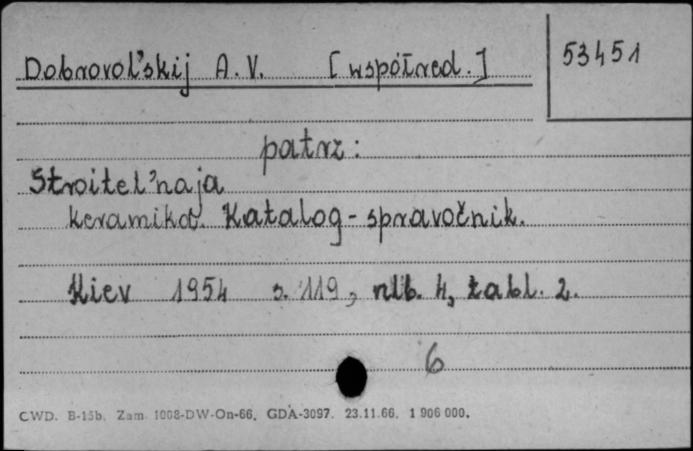 Dobrovol'skij A. V. [współred.]
53451
patrz:
Stroitel'naja
keramika. Katalog-spravočnik.
Kiev 1954 s. 119, nlb. 4, tabl. 2.
6
CWD. B-15b. Zam. 1008-DW-On-66. GDA-3097. 23.11.66. 1 906 000.